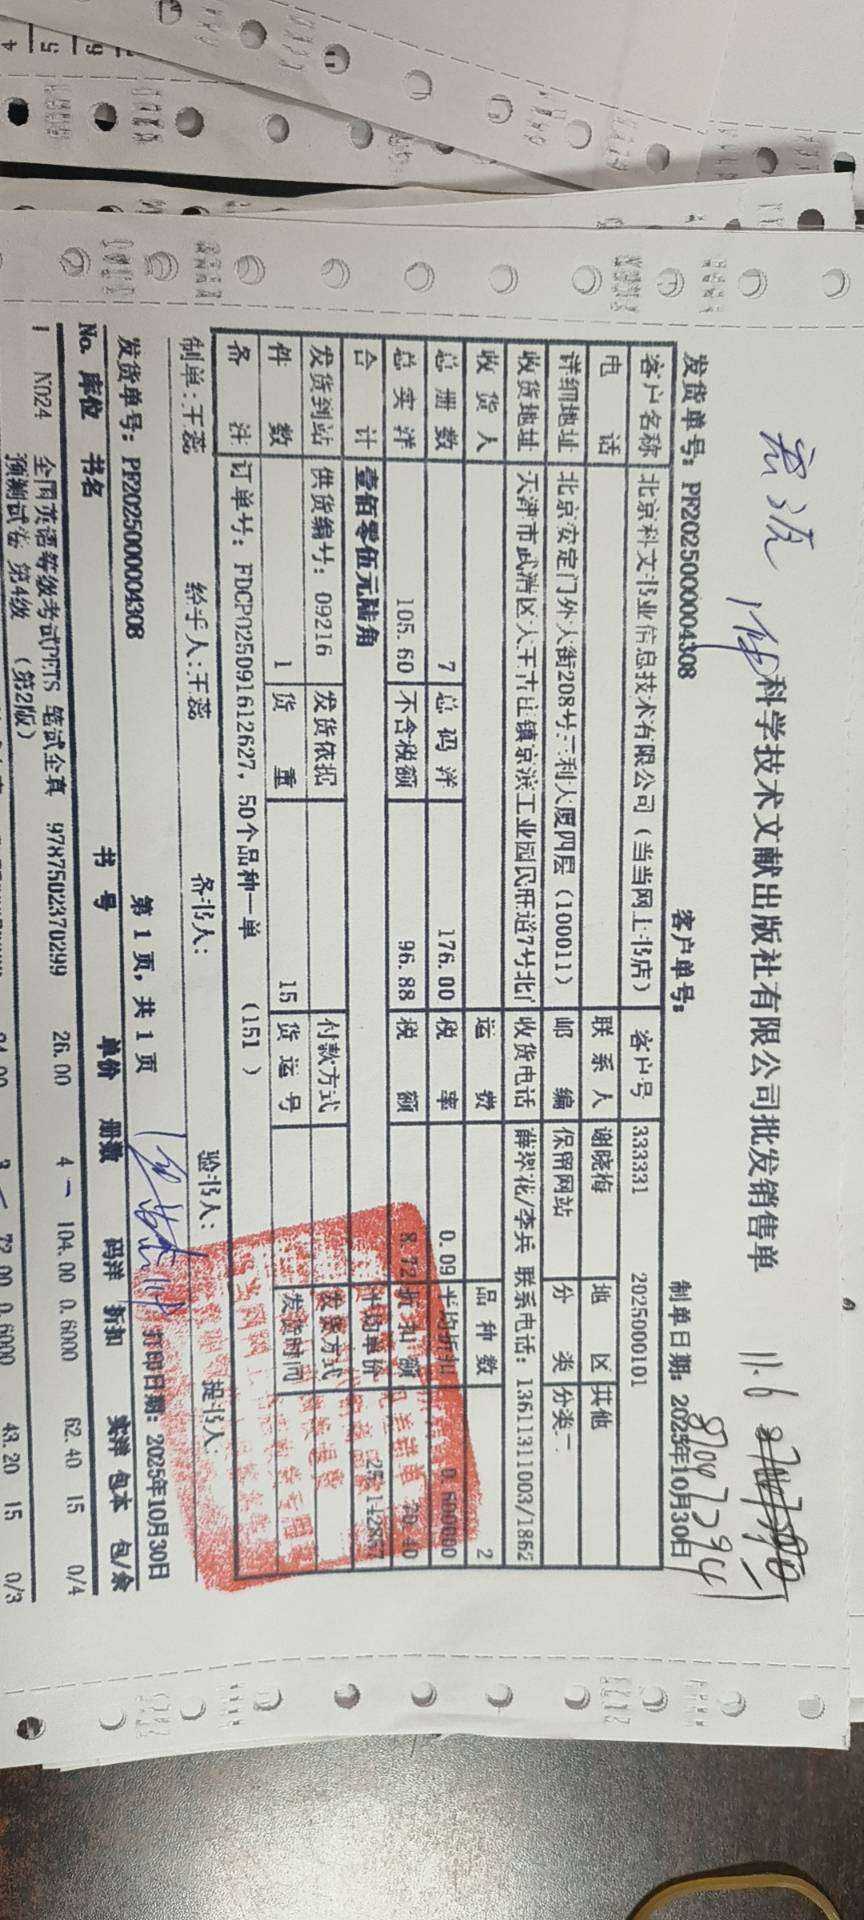 科学技术文献出版社有限公司批发销售单
11.6
87047294
发货单号: PF2025000004308 客户单号: 制单日期: 2025年10月30日
客户名称 北京科文书业信息技术有限公司（当当网上书店） 客户号 333331 2025000101
电话 联系人 谢晓梅 地区 其他
详细地址 北京安定门外大街208号三利大厦四层（100011） 邮编 保留网站 分类 分类二
收货地址 天津市武清区大王古庄镇京滨工业园民旺道7号北门 收货电话 薛翠花/李兵 联系电话: 13611311003/1862
收货人 运费 品种数 2
总册数 7 总码洋 176.00 税率 0.09 平均折扣 0.600000
总实洋 105.60 不含税额 96.88 税额 8.72 折扣额 70.40
合计 壹佰零伍元陆角 平均单价 25.142857
发货到站 供货编号: 09216 发货依据 付款方式 发货方式
件数 1 货重 15 货运号 发货时间
备注 订单号: FDCP025091612627, 50个品种一单 （151 ）
制单:王蕊 经手人:王蕊 备书人: 验书人: 提书人:
发货单号: PF2025000004308 第 1 页, 共 1 页 打印日期: 2025年10月30日
No. 库位 书名 书号 单价 册数 码洋 折扣 实洋 包本 包/余
1 N024 全国英语等级考试PETS 笔试全真 9787502370299 26.00 4 104.00 0.6000 62.40 15 0/4
预测试卷 第4级 （第2版）
3 72.00 0.6000 43.20 15 0/3